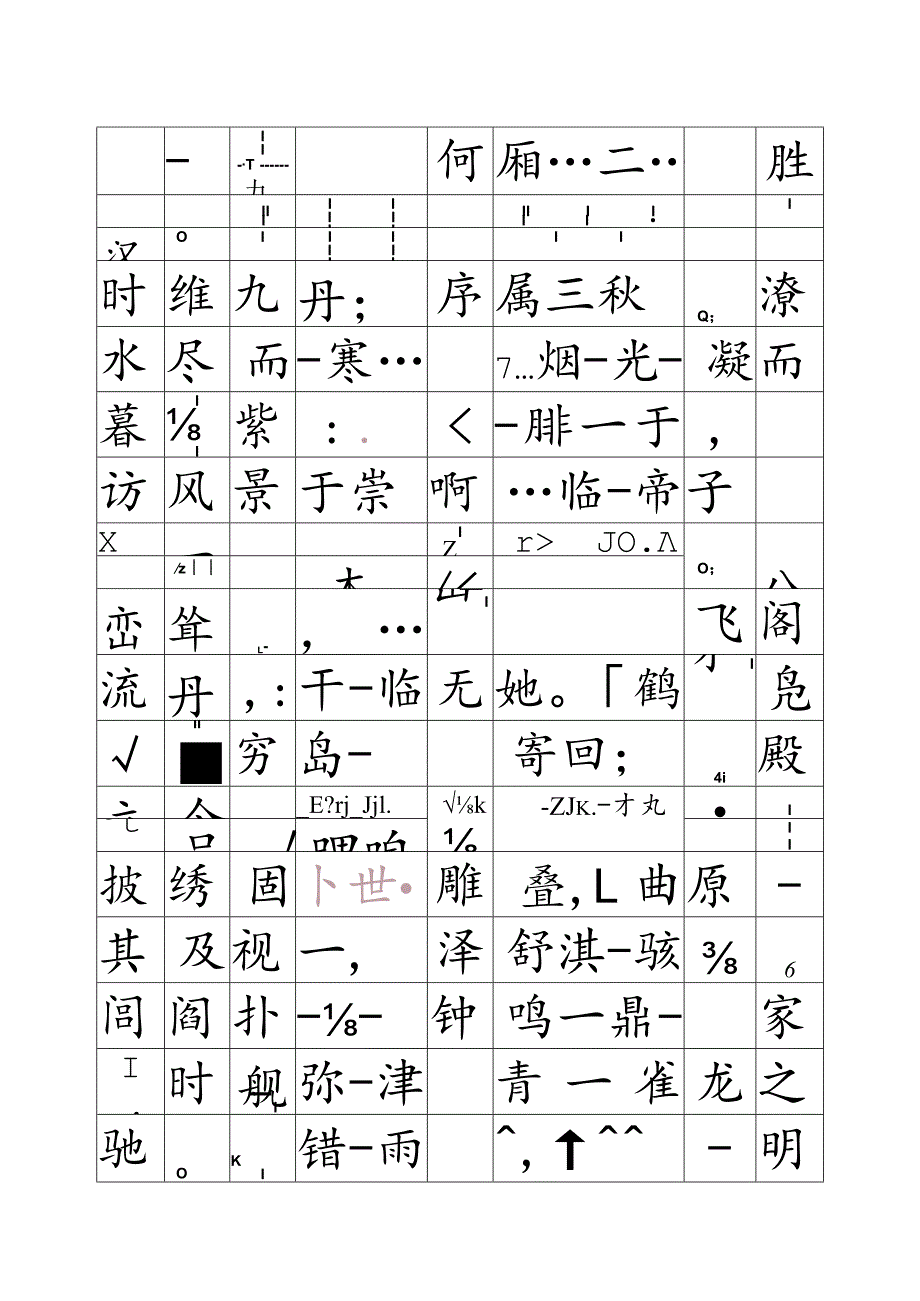 – 何 厢…二·· 胜
O
时 维 九 丹； 序 属三秋 Q； 潦
水 尽 而 –寒… 7…烟–光– 凝 而
暮 ⅛ 紫 ：. く –腓一于 ，
访 风 景 于崇 啊 …临–帝 子
X Z r> JO.Λ
O；
峦 耸 L- ， … 飞 阁
流 丹 ，: 干–临 无 她。「鹤 凫
√ ■ 穷 岛– 寄回； 4i 殿
_E?rj_Jjl. √⅛k -ZJK.–才丸 •
⅛
披 绣 固 卜世• 雕 叠，L曲 原 –
其 及 视 一， 泽 舒淇–骇 ⅜ 6
闾 阎 扑 –⅛– 钟 鸣一鼎– 家
I 时 舰 弥–津 青一雀 龙 之
驰 O K I 错–雨 ^，↑^^ – 明